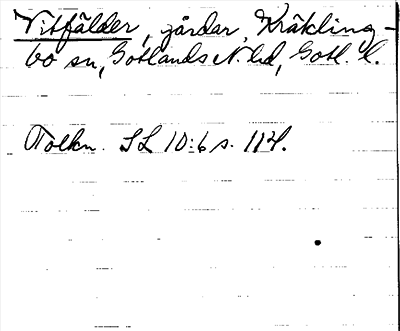 Vitfälder, gårdar, Kräkling-
bo sn, Gotlands N. hd, Gotl. l.
Tolkn. SL 10:6 s. 114.